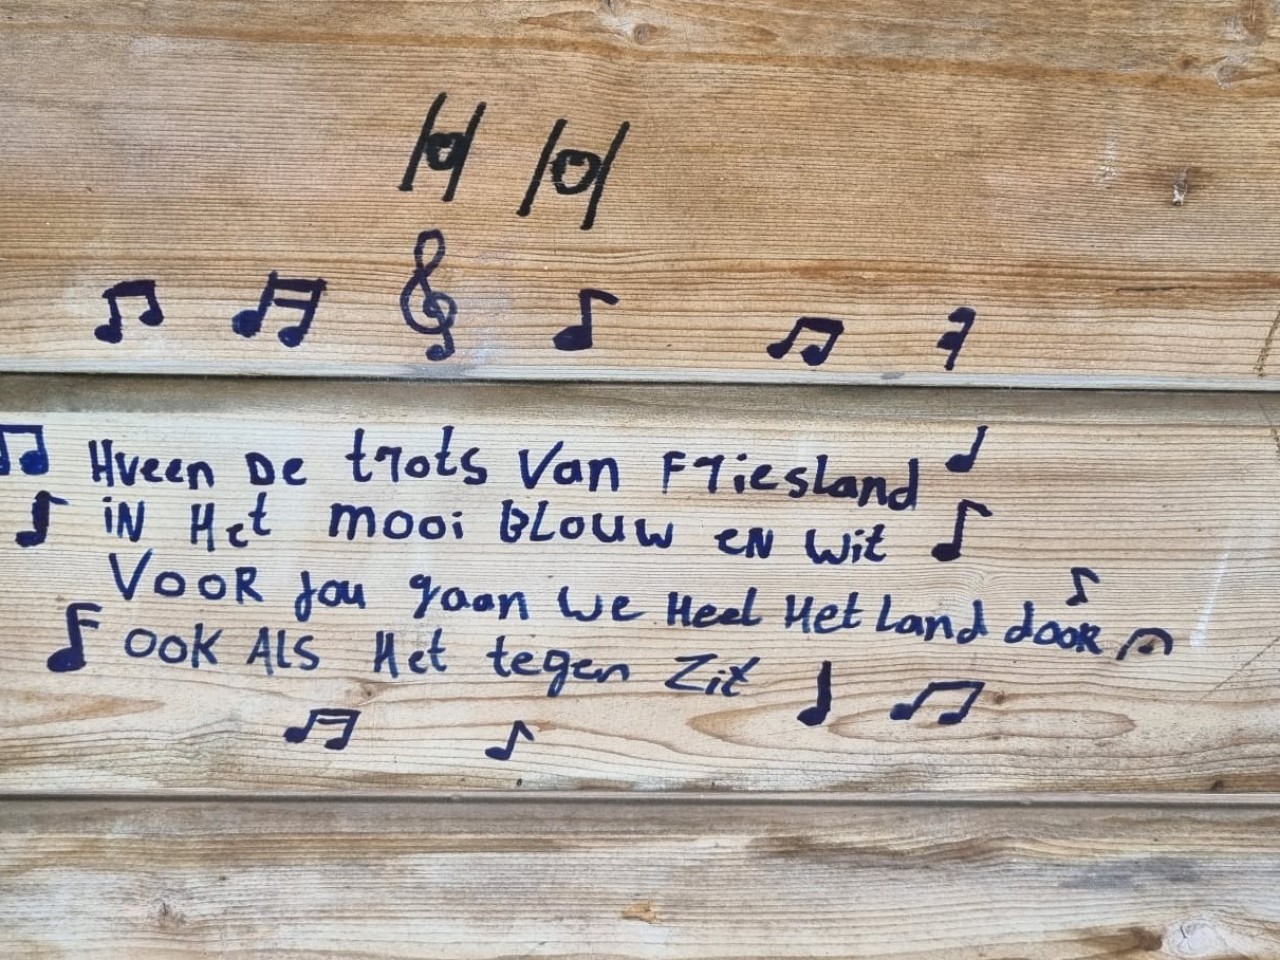 Hveen De trots Van Friesland
iN Het mooi BLOUW eN wit
VOOR jou gaan we Heel Het Land dOOR
OOK AlS Het tegen Zit